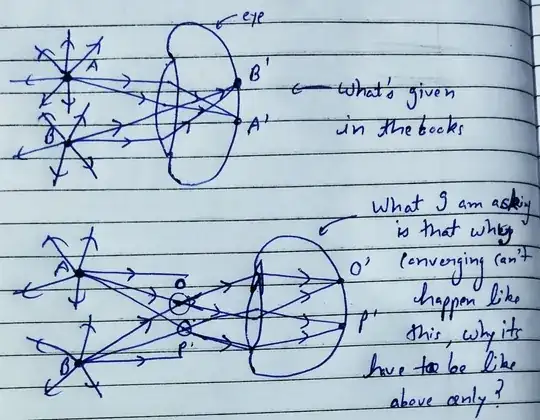 eye
A
B'
B
A'
What's given
in the books
What I am asking
is that why
converging can't
happen like
this, why its
have to be like
above only?
A
O
O'
B
P'
P'